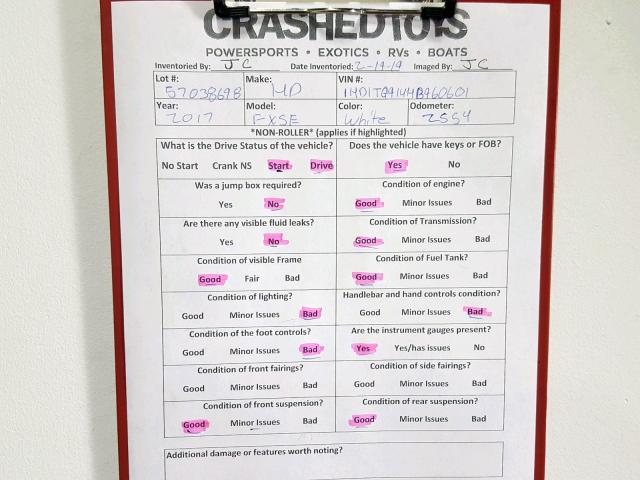 CRASHEDTOYS
POWERSPORTS • EXOTICS • RVs • BOATS
Inventoried By: JC Date Inventoried: 2-19-19 Imaged By: JC
Lot #: Make: VIN #:
57038698 HD
Year: Model: Color: Odometer:
2017 FXSE White 2554
*NON-ROLLER* (applies if highlighted)
What is the Drive Status of the vehicle? Does the vehicle have keys or FOB?
No Start Crank NS Start Drive Yes No
Was a jump box required? Condition of engine?
Yes No Good Minor Issues Bad
Are there any visible fluid leaks? Condition of Transmission?
Yes No Good Minor Issues Bad
Condition of visible Frame Condition of Fuel Tank?
Good Fair Bad Good Minor Issues Bad
Condition of lighting? Handlebar and hand controls condition?
Good Minor Issues Bad Good Minor Issues Bad
Condition of the foot controls? Are the instrument gauges present?
Good Minor Issues Bad Yes Yes/has issues No
Condition of front fairings? Condition of side fairings?
Good Minor Issues Bad Good Minor Issues Bad
Condition of front suspension? Condition of rear suspension?
Good Minor Issues Bad Good Minor Issues Bad
Additional damage or features worth noting?